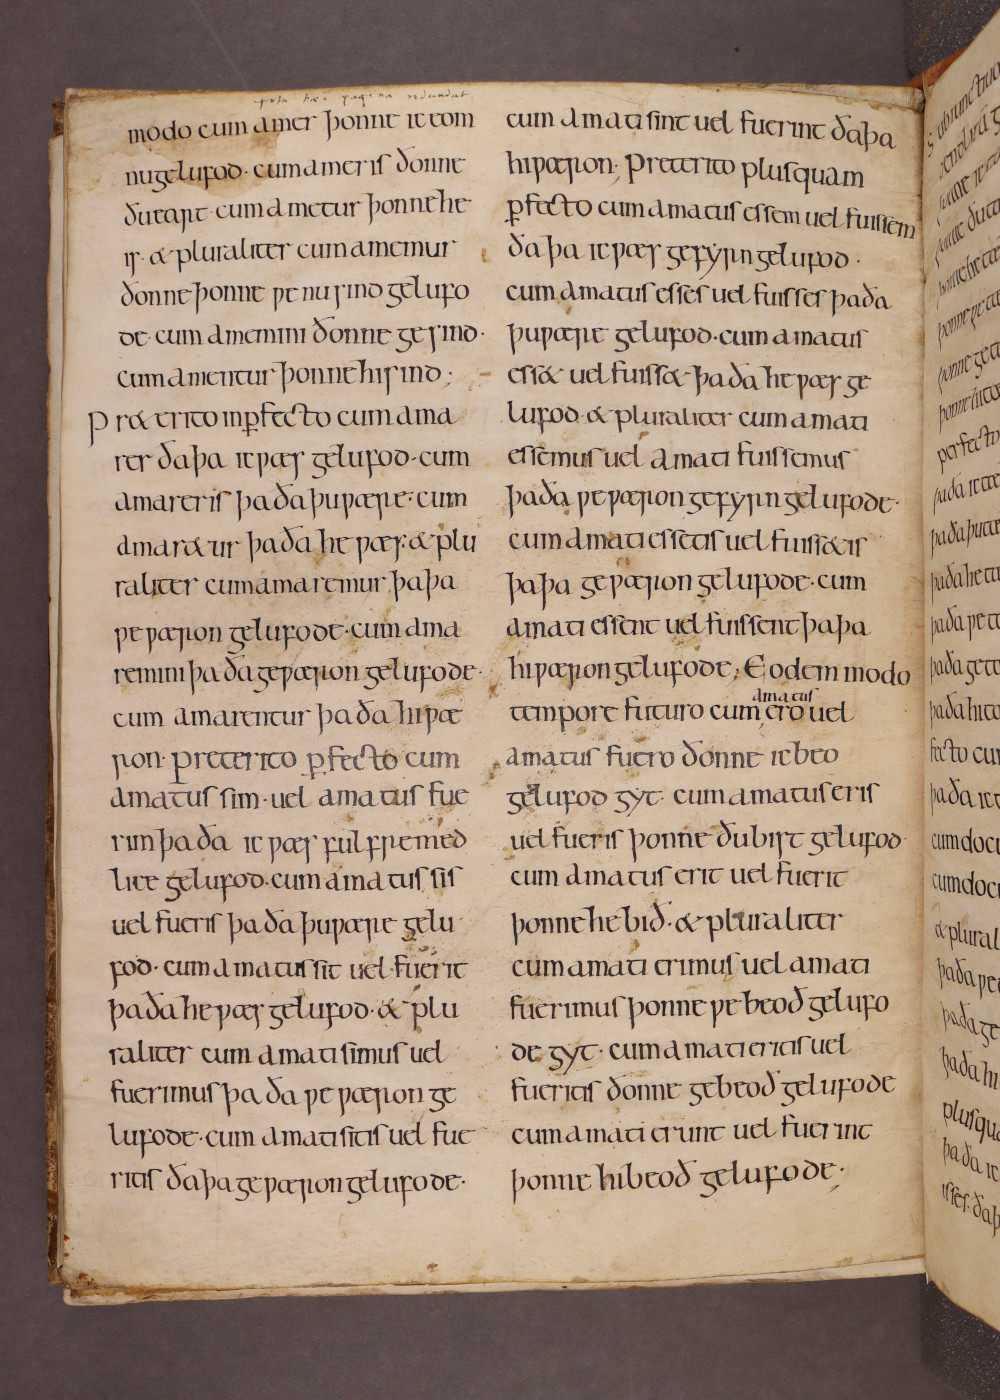 tota hæc pagina redundat
modo cum amer þonne ic eom
nu gelufod · cum ameris ðonne
ðu eart · cum ametur þonne he
is · & pluraliter cum amemur
ðonne þonne ƿe nu sind gelufo
de · cum amemini ðonne ge sind ·
cum amentur þonne hi sind ;
Pr&erito inꝑfecto cum ama
rer ðaþa ic ƿæs gelufod · cum
amareris þaða þu ƿære · cum
amar&ur þaða he ƿæs · & plu
raliter cum amaremur þaþa
ƿe ƿæron gelufode · cum ama
remini þaða ge ƿæron gelufode ·
cum amarentur þaða hi ƿæ
ron · preterito ꝑfecto cum
amatus sim · uel amatus fue
rim þaða ic ƿæs fulfremed
lice gelufod · cum amatus sis
uel fueris þaða þu ƿære gelu
fod · cum amatus sit uel fuerit
þaða he ƿæs gelufod · & plu
raliter cum amati simus uel
fuerimus þaða ƿe ƿæron ge
lufode · cum amati sitis uel fue
ritis ðaþa ge ƿæron gelufode ·
cum amati sint uel fuerint ðaþa
hi ƿæron ; Preterito plusquam
ꝑfecto cum amatus essem uel fuissem
ðaþa ic ƿæs gefyrn gelufod ·
cum amatus esses uel fuisses þaða
þu ƿære gelufod · cum amatus
ess& uel fuiss& þaða he ƿæs ge
lufod · & pluraliter cum amati
essemus uel amati fuissemus
þaða ƿe ƿæron gefyrn gelufode ·
cum amati essetis uel fuiss&is
þaþa ge ƿæron gelufode · cum
amati essent uel fuissent þaþa
hi ƿæron gelufode ; Eodem modo
amatus
tempore futuro cum, ero uel
amatus fuero ðonne ic beo
gelufod gyt · cum amatus eris
uel fueris þonne ðu bist gelufod ·
cum amatus erit uel fuerit
þonne he bið · & pluraliter
cum amati erimus uel amati
fuerimus þonne ƿe beoð gelufo
de gyt · cum amati eritis uel
fueritis ðonne ge beoð gelufode
cum amati erunt uel fuerint
þonne hi beoð gelufode ;